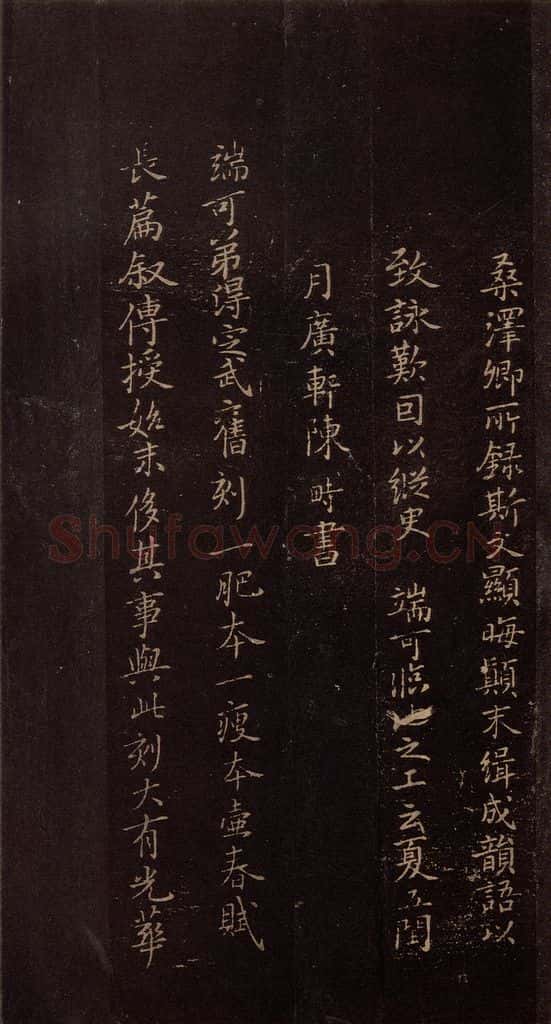 桑澤卿所録斯文顯晦顛末緝成韻語以
致詠歎回以縱臾 端可臨之工云夏五閏
月廣軒陳時書
端可弟得定武舊刻一肥本一瘦本壷春賦
長篇叙傳授始末俊其事與此刻大有光華
Shufawang.CN